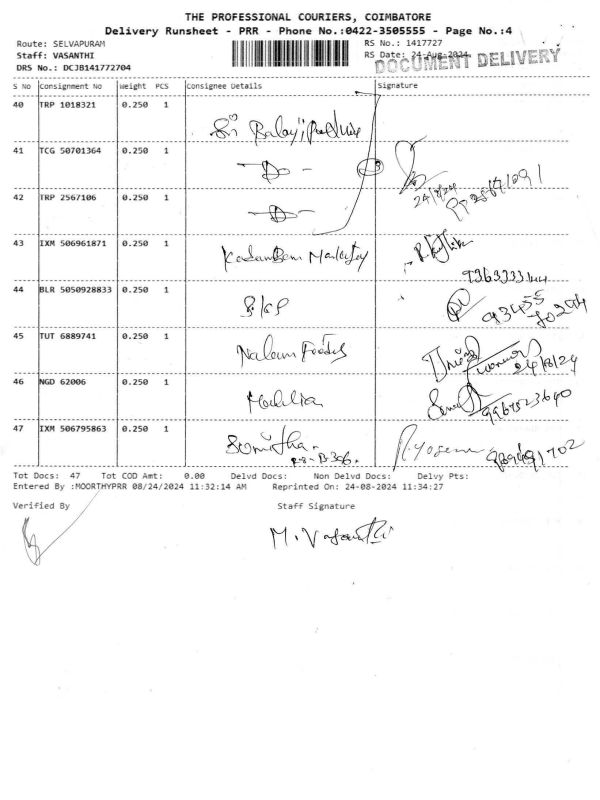 THE PROFESSIONAL COURIERS, COIMBATORE
Delivery Runsheet - PRR - Phone No.:0422-3505555 - Page No.:4
Route: SELVAPURAM
RS No.: 1417727
Staff: VASANTHI
RS Date: 24-Aug-2024
DRS No.: DCJB141772704
DOCUMENT DELIVERY
S No Consignment No Weight PCS Consignee Details Signature
40 TRP 1018321 0.250 1
Sri Balaji
41 TCG 50701364 0.250 1
-Do-
24/8/24
42 TRP 2567106 0.250 1
-Do-
43 IXM 506961871 0.250 1
44 BLR 5050928833 0.250 1
93455
45 TUT 6889741 0.250 1
Nalam Foods
24/8/24
46 NGD 62006 0.250 1
47 IXM 506795863 0.250 1
Tot Docs: 47 Tot COD Amt: 0.00 Delvd Docs: Non Delvd Docs: Delvy Pts:
Entered By :MOORTHYPRR 08/24/2024 11:32:14 AM Reprinted On: 24-08-2024 11:34:27
Verified By Staff Signature
M. Vasanthi